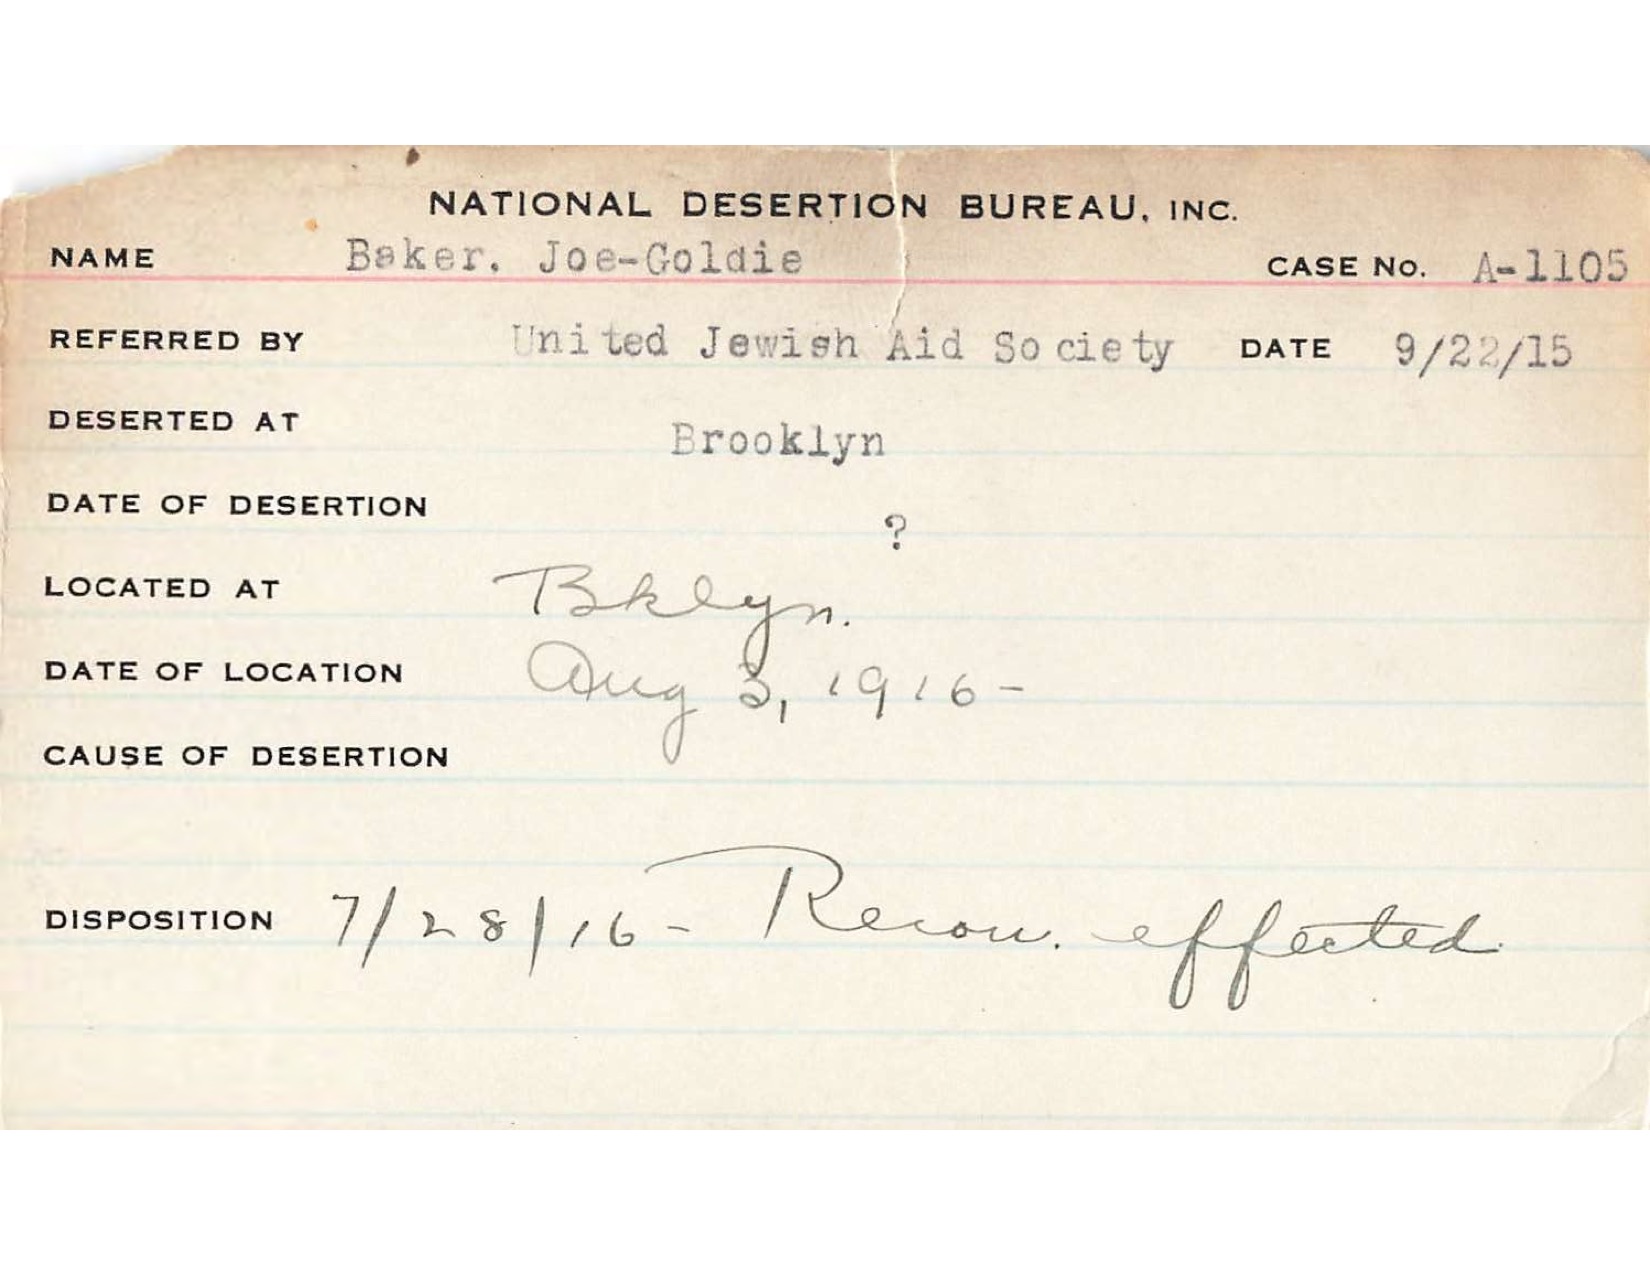 NATIONAL DESERTION BUREAU, INC.
NAME Baker. Joe-Goldie CASE No. A-1105
REFERRED BY United Jewish Aid Society DATE 9/22/15
DESERTED AT Brooklyn
DATE OF DESERTION ?
LOCATED AT Bklyn.
DATE OF LOCATION Aug 3, 1916-
CAUSE OF DESERTION
DISPOSITION 7/28/16- Recon. effected.